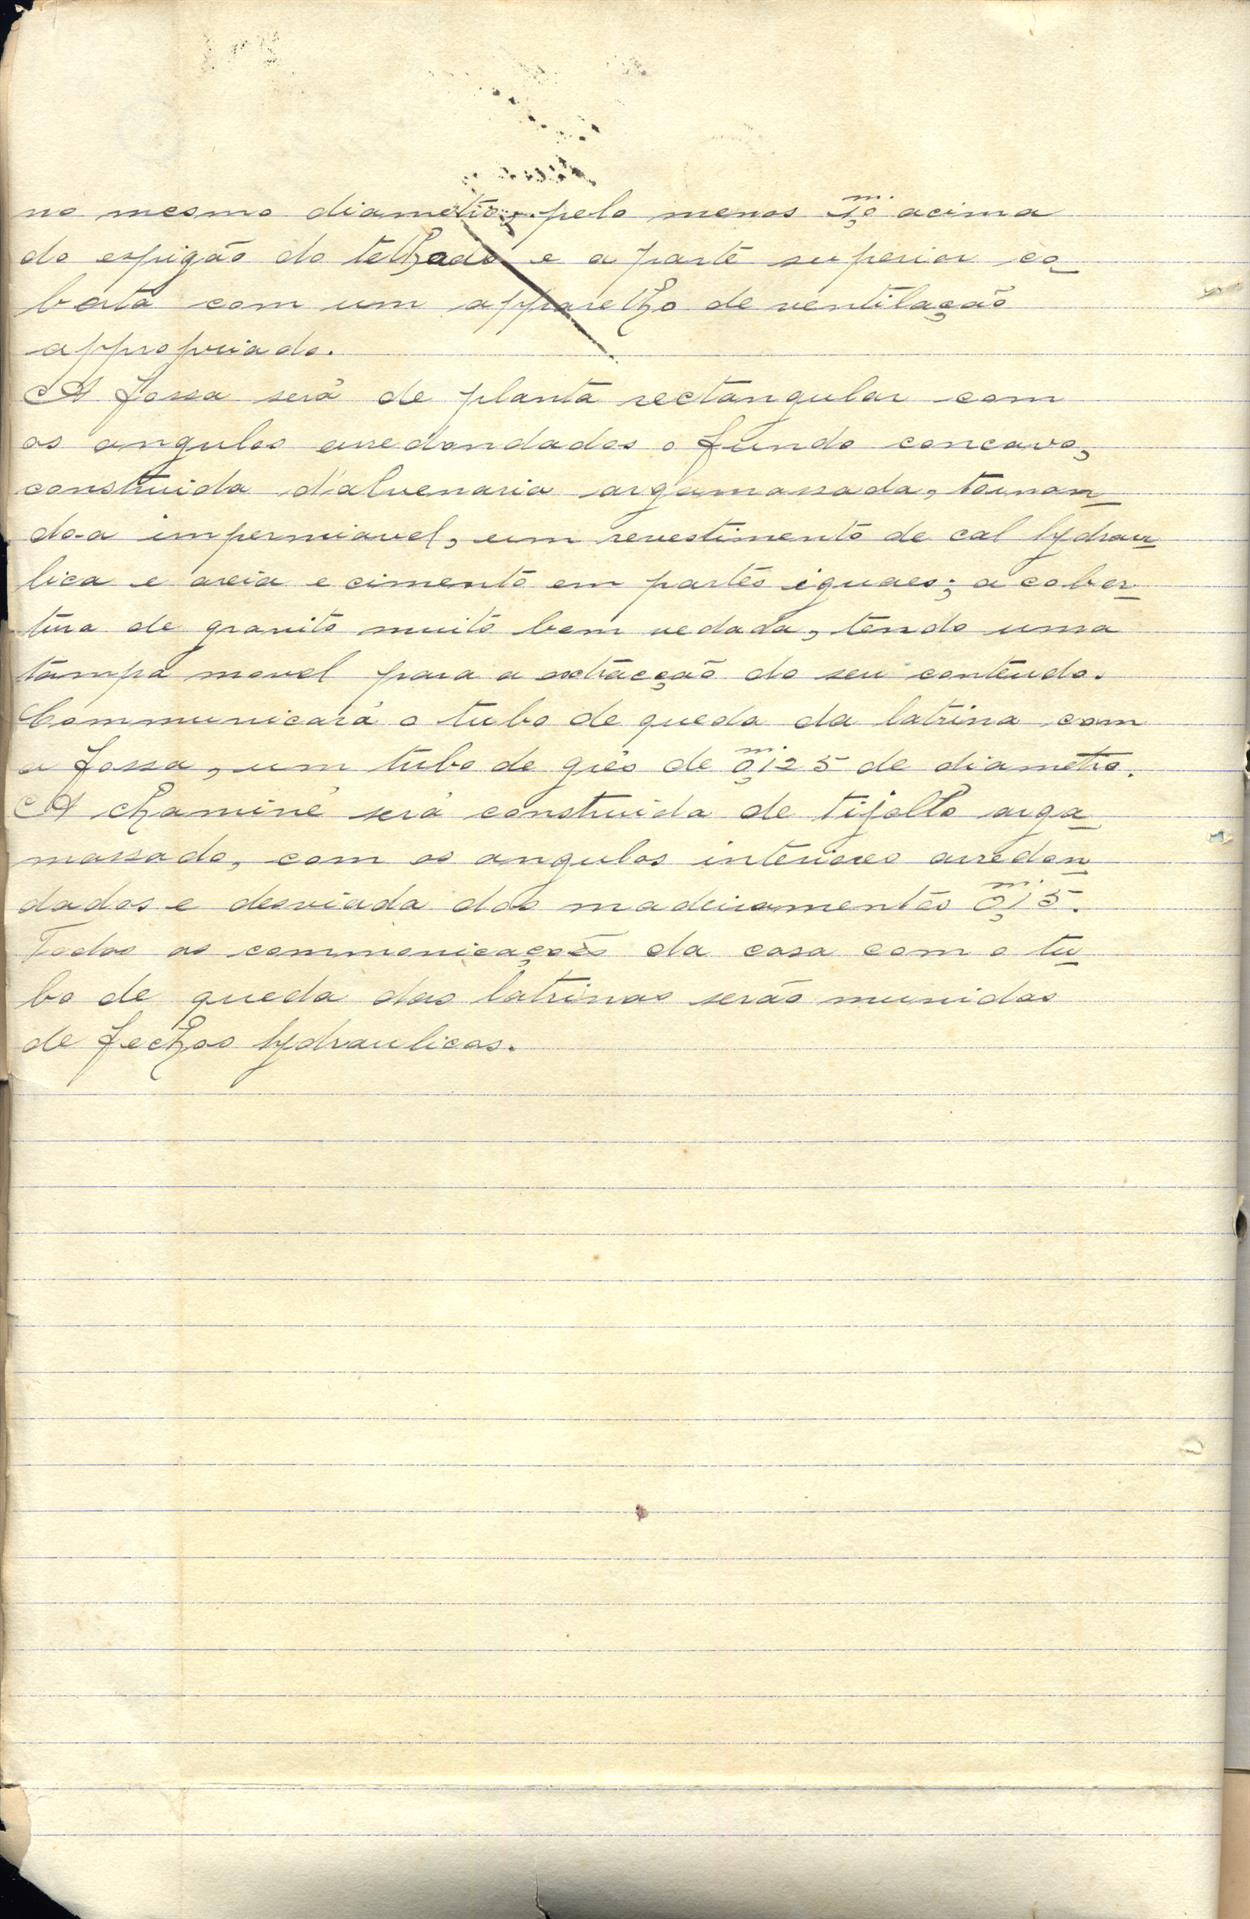 no mesmo diametro, pelo menos 1,0 acima
do espigão do telhado e a parte superior co-
berta com um apparelho de ventilação
appropriado.
A fossa será de planta rectangular com
os angulos arredondados o fundo concavo,
construida d'alvenaria argamassada, tornan-
do-a impermiavel, um revestimento de cal hydrau-
lica e areia e cimento em partes iguaes; a cober-
tura de granito muito bem vedada, tendo uma
tampa movel para a extracção do seu conteudo.
Communicará o tubo de queda da latrina com
a fossa, um tubo de grés de 0,m125 de diametro.
A chaminé será construida de tijollo arga-
massado, com os angulos interiores arredon-
dados e desviada dos madeiramentos 0,m15.
Todas as communicações da casa com o tu-
bo de queda das latrinas serão munidas
de fechos hydraulicos.